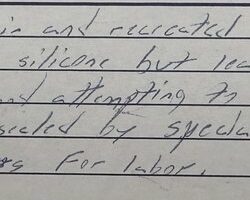 in and recreated
silicone but lea
nd attempting to
sealed by specia
rs for labor.